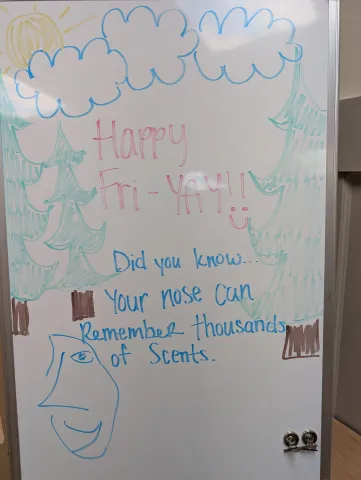 Happy
Fri-YAY!!
Did you know...
Your nose can
Remember thousands
of Scents.